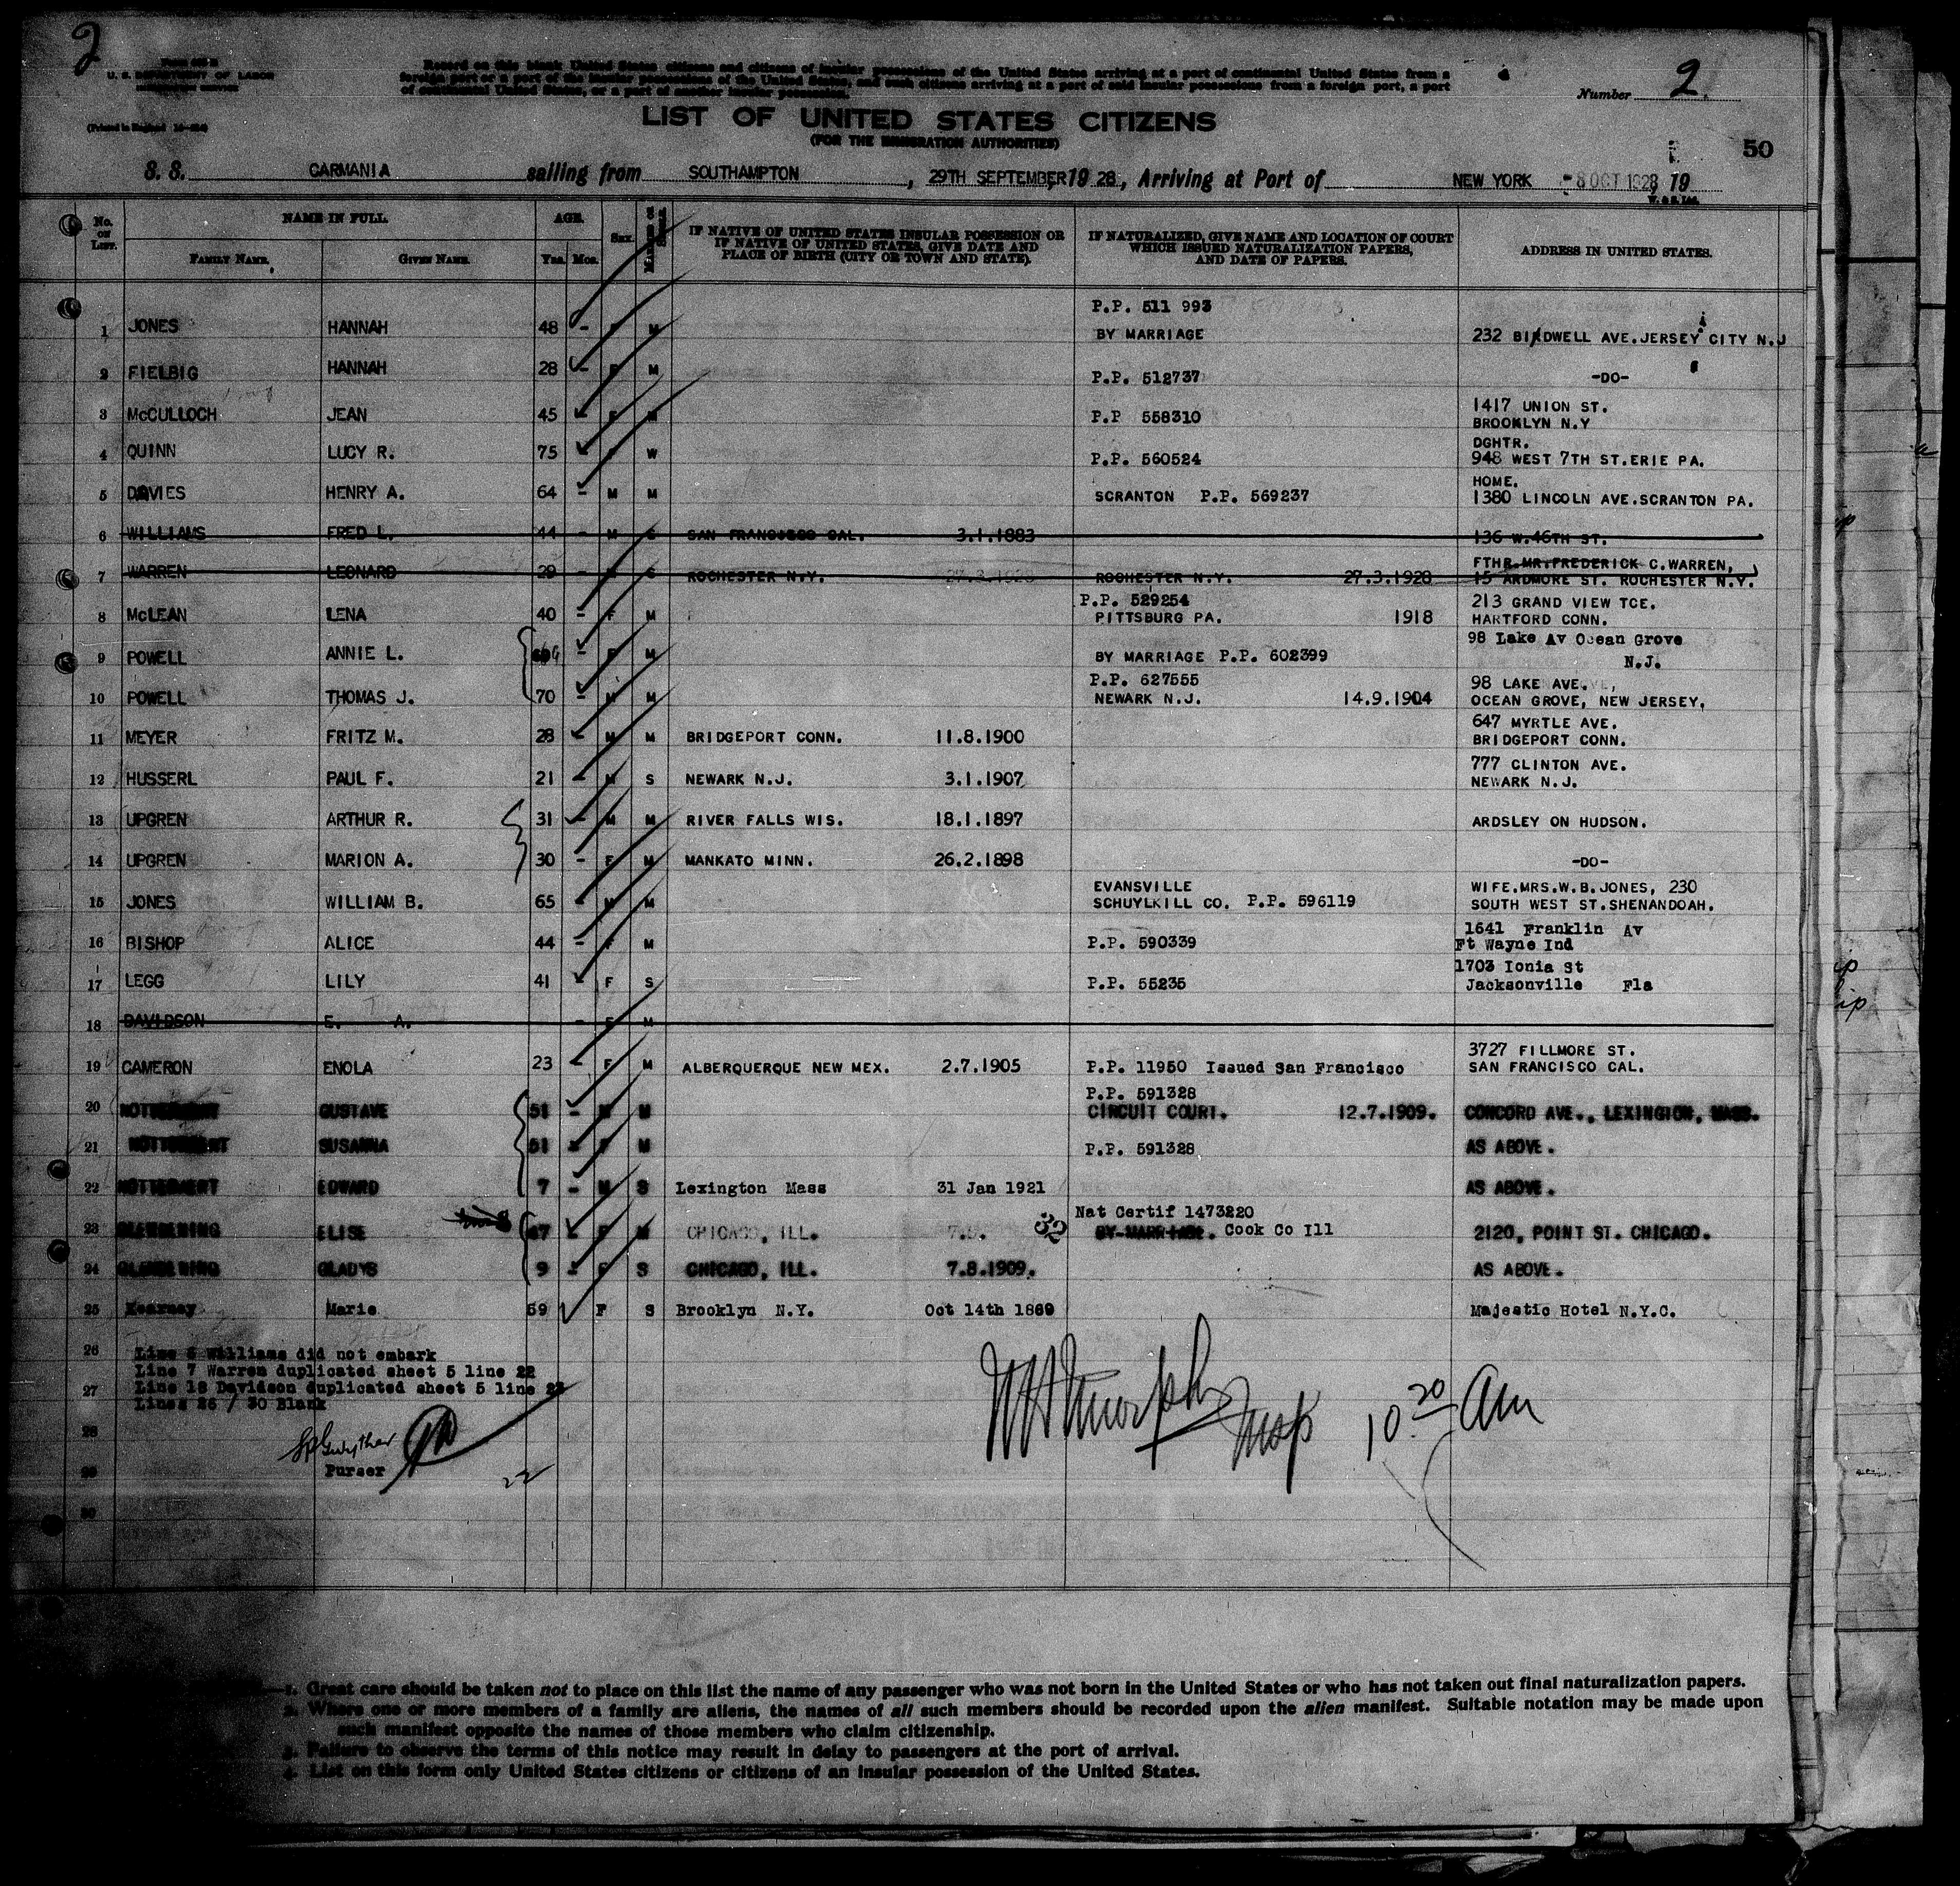 2
U. S. DEPARTMENT OF LABOR
Record on this blank United States citizens and citizens of insular possessions of the United States arriving at a port of continental United States from a
foreign port or a port of the insular possessions of the United States, and such citizens arriving at a port of said insular possessions from a foreign port, a port
of continental United States, or a port of another insular possession.
Number 2.
LIST OF UNITED STATES CITIZENS
(FOR THE IMMIGRATION AUTHORITIES)
50
S. S. CARMANIA sailing from SOUTHAMPTON, 29TH SEPTEMBER, 19 28, Arriving at Port of NEW YORK -8 OCT 1928, 19
No. ON LIST. NAME IN FULL. AGE. Sex. MARRIED OR SINGLE. IF NATIVE OF UNITED STATES INSULAR POSSESSION OR IF NATIVE OF UNITED STATES, GIVE DATE AND PLACE OF BIRTH (CITY OR TOWN AND STATE). IF NATURALIZED, GIVE NAME AND LOCATION OF COURT WHICH ISSUED NATURALIZATION PAPERS, AND DATE OF PAPERS. ADDRESS IN UNITED STATES.
FAMILY NAME. GIVEN NAME. Yrs. Mos.
P.P. 511 993
1 JONES HANNAH 48 - F M BY MARRIAGE 232 BIDWELL AVE.JERSEY CITY N.J
2 FIELBIG HANNAH 28 - F M P.P. 512737 -DO-
1417 UNION ST.
3 McCULLOCH JEAN 45 - F M P.P 558310 BROOKLYN N.Y
DGHTR.
4 QUINN LUCY R. 75 - F W P.P. 560524 948 WEST 7TH ST.ERIE PA.
HOME.
5 DAVIES HENRY A. 64 - M M SCRANTON P.P. 569237 1380 LINCOLN AVE.SCRANTON PA.
6 WILLIAMS FRED L. 44 - M S SAN FRANCISCO CAL. 3.1.1883 136 W.46TH ST.
FTHR.MR.FREDERICK C.WARREN,
7 WARREN LEONARD 29 - M S ROCHESTER N.Y. 27.3.1928 ROCHESTER N.Y. 27.3.1928 15 ARDMORE ST. ROCHESTER N.Y.
P.P. 529254 213 GRAND VIEW TCE.
8 McLEAN LENA 40 - F M PITTSBURG PA. 1918 HARTFORD CONN.
98 Lake Av Ocean Grove
9 POWELL ANNIE L. 69 - F M BY MARRIAGE P.P. 602399 N.J.
P.P. 627555 98 LAKE AVE.,
10 POWELL THOMAS J. 70 - M M NEWARK N.J. 14.9.1904 OCEAN GROVE, NEW JERSEY.
647 MYRTLE AVE.
11 MEYER FRITZ M. 28 - M M BRIDGEPORT CONN. 11.8.1900 BRIDGEPORT CONN.
777 CLINTON AVE.
12 HUSSERL PAUL F. 21 - M S NEWARK N.J. 3.1.1907 NEWARK N.J.
13 UPGREN ARTHUR R. 31 - M M RIVER FALLS WIS. 18.1.1897 ARDSLEY ON HUDSON.
14 UPGREN MARION A. 30 - F M MANKATO MINN. 26.2.1898 -DO-
EVANSVILLE WIFE.MRS.W.B.JONES, 230
15 JONES WILLIAM B. 65 - M M SCHUYLKILL CO. P.P. 596119 SOUTH WEST ST.SHENANDOAH.
1641 Franklin Av
16 BISHOP ALICE 44 - F M P.P. 590339 Ft Wayne Ind
1703 Ionia St
17 LEGG LILY 41 - F S P.P. 55235 Jacksonville Fla
18 DAVIDSON E. A. - F M
3727 FILLMORE ST.
19 CAMERON ENOLA 23 - F M ALBERQUERQUE NEW MEX. 2.7.1905 P.P. 11950 Issued San Francisco SAN FRANCISCO CAL.
P.P. 591328
20 GUSTAVE 51 - M M CIRCUIT COURT. 12.7.1909. CONCORD AVE., LEXINGTON, MASS.
21 SUSANNA 51 - F M P.P. 591328 AS ABOVE.
22 EDWARD 7 - M S Lexington Mass 31 Jan 1921 AS ABOVE.
Nat Certif 1473220
23 ELISE 37 - F M CHICAGO, ILL. 32 BY MARRIAGE. Cook Co Ill 2120, POINT ST. CHICAGO.
24 GLADYS 9 - F S CHICAGO, ILL. 7.8.1909. AS ABOVE.
25 Kearney Marie 59 F S Brooklyn N.Y. Oct 14th 1869 Majestic Hotel N.Y.C.
26 Line 6 Williams did not embark
Line 7 Warren duplicated sheet 5 line 22
27 Line 18 Davidson duplicated sheet 5 line 23
Lines 26 / 30 Blank
28
Purser
29
22
30
Murphy Insp 10 20 am
1. Great care should be taken not to place on this list the name of any passenger who was not born in the United States or who has not taken out final naturalization papers.
2. Where one or more members of a family are aliens, the names of all such members should be recorded upon the alien manifest. Suitable notation may be made upon
such manifest opposite the names of those members who claim citizenship.
3. Failure to observe the terms of this notice may result in delay to passengers at the port of arrival.
4. List on this form only United States citizens or citizens of an insular possession of the United States.